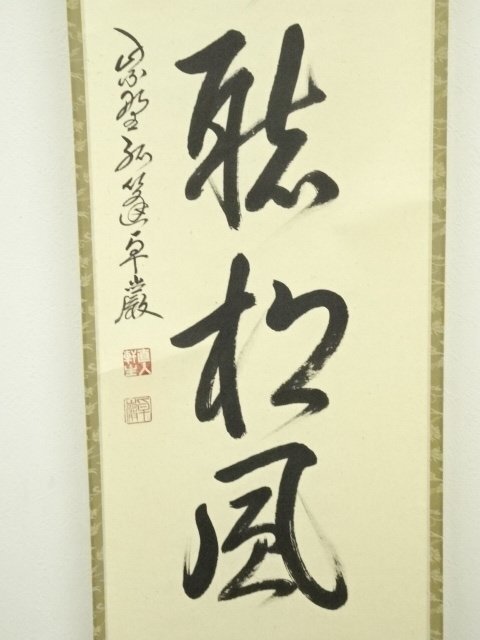 聴松風
紫野孤篷卓巌